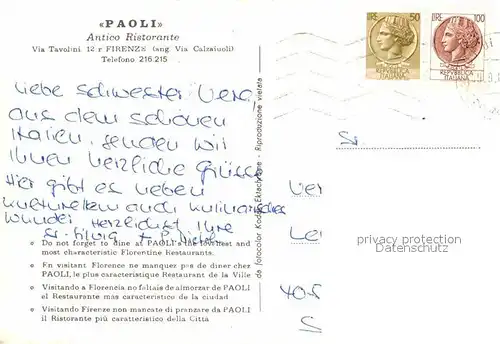 «PAOLI»
Antico Ristorante
Via Tavolini, 12 r FIRENZE (ang. Via Calzaiuoli)
Telefono 216.215
LIRE 50
LIRE 100
REPUBBLICA
ITALIANA
REPUBBLICA
ITALIANA
Liebe Schwester Vera,
aus dem schönen
Italien, senden wir
Ihnen herzliche Grüsse
Hier gibt es neben
kulturellem auch kulinarisches
Wunder Herzlichst Ihre
Sr. Silvia + P.
Sr.
Ver
Le
40-5
S
privacy protection
Datenschutz
Do not forget to dine at PAOLI's the and
most characteristic Florentine Restaurants.
En visitant Florence ne manquez pas de diner chez
PAOLI, le plus caracteristique Restaurant de la Ville
Visitando a Florencia no faltais de almorzar de PAOLI
el Restaurante más caracteristico de la ciudad
Visitando Firenze non mancate di pranzare da PAOLI
il Ristorante più caratteristico della Città
da fotocolor Kodak Ektachrome - Riproduzione vietata